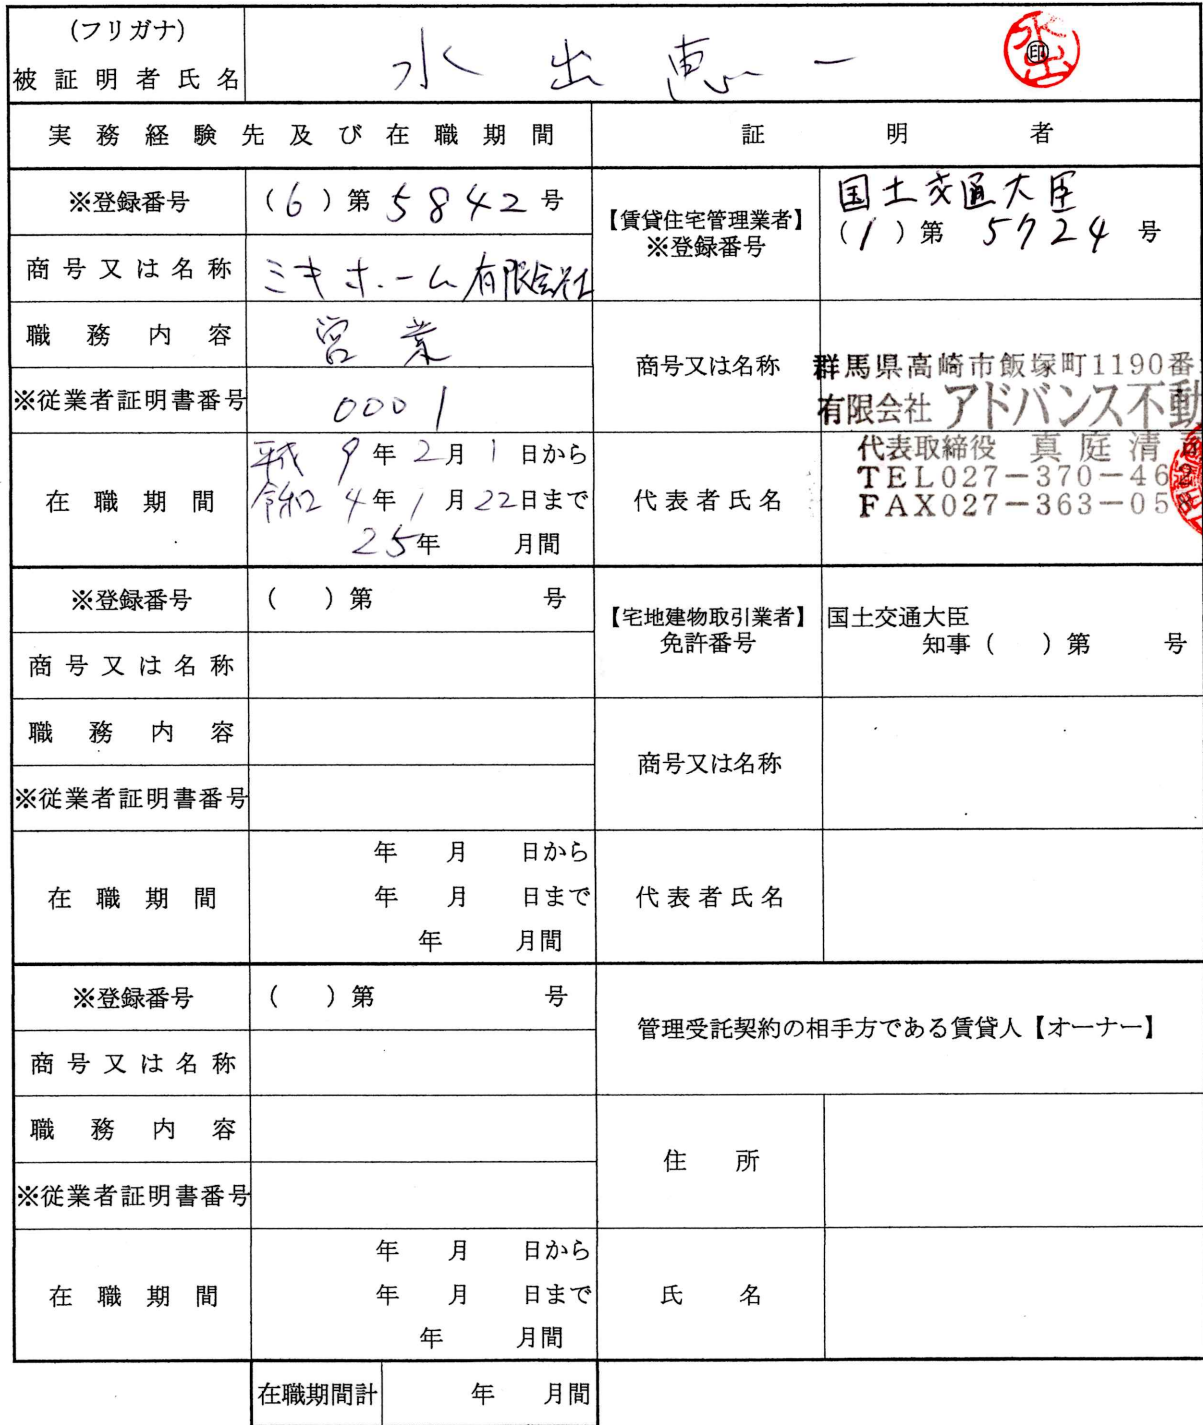 (フリガナ)
被証明者氏名 水出恵一 ㊞ 水出
実務経験先及び在職期間 証明者
※登録番号 (6)第5842号
【賃貸住宅管理業者】
※登録番号
国土交通大臣
(1)第 5724 号
商号又は名称 ミキホーム有限会社
職務内容 営業
※従業者証明書番号 0001
商号又は名称
群馬県高崎市飯塚町1190番
有限会社 アドバンス不動
在職期間
平成 9年 2月 1日から
令和 4年 1月 22日まで
25年 月間
代表者氏名
代表取締役 真庭清
TEL027-370-46
FAX027-363-05
※登録番号 ( )第 号
【宅地建物取引業者】
免許番号
国土交通大臣
知事( )第 号
商号又は名称
職務内容
※従業者証明書番号
商号又は名称
在職期間
年 月 日から
年 月 日まで
年 月間
代表者氏名
※登録番号 ( )第 号
管理受託契約の相手方である賃貸人【オーナー】
商号又は名称
職務内容
※従業者証明書番号
住所
在職期間
年 月 日から
年 月 日まで
年 月間
氏名
在職期間計 年 月間